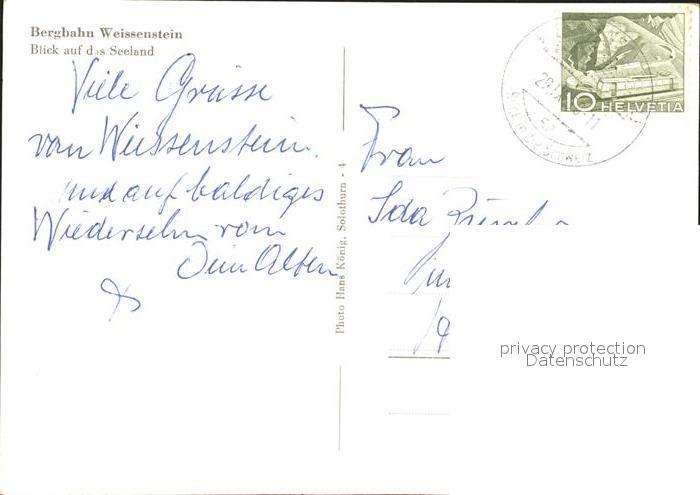 Bergbahn Weissenstein
Blick auf das Seeland
Viele Grüsse
vom Weissenstein.
und auf baldiges
Wiedersehn vom
Dein Alten
Photo Hans König, Solothurn - 4
10 HELVETIA
Frau
Ida
privacy protection
Datenschutz